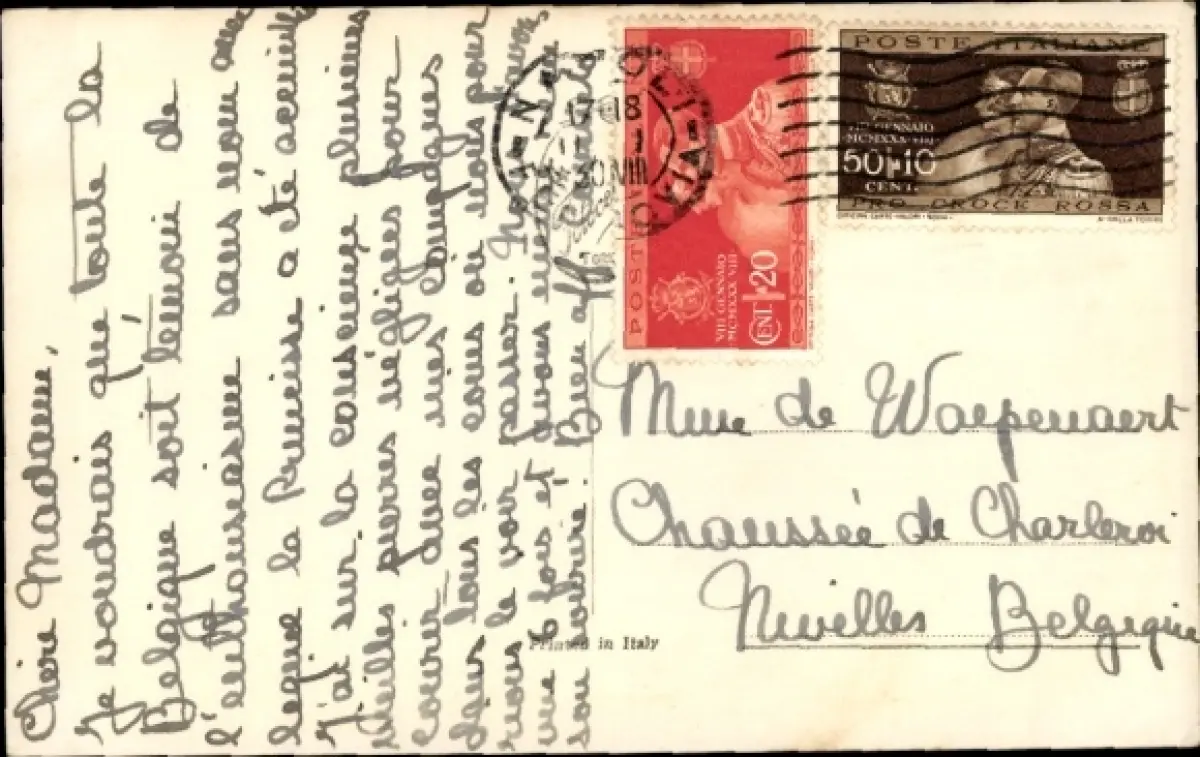 Chère Madame,
Je voudrais que toute la
Belgique soit témoin de
l'enthousiasme sans nom avec
lequel la Princesse a été accueillie
J'ai sur la conscience plusieurs
vieilles pierres négligées pour
courir avec mes compagnes
dans tous les coins où nous pour
rions la voir passer. Nous l'avons
vue 6 fois et avons encore rean
son sourire! Bien aff
POSTE
VIII GENNAIO
MCMXXX-VIII
CENT. +20
POSTE ITALIANE
VIII GENNAIO
MCMXXX-VIII
50+10
CENT.
PRO CROCE ROSSA
17-18
30 VIII
Mme de Waepenaert
Chaussée de Charleroi
Nivelles Belgique
Printed in Italy